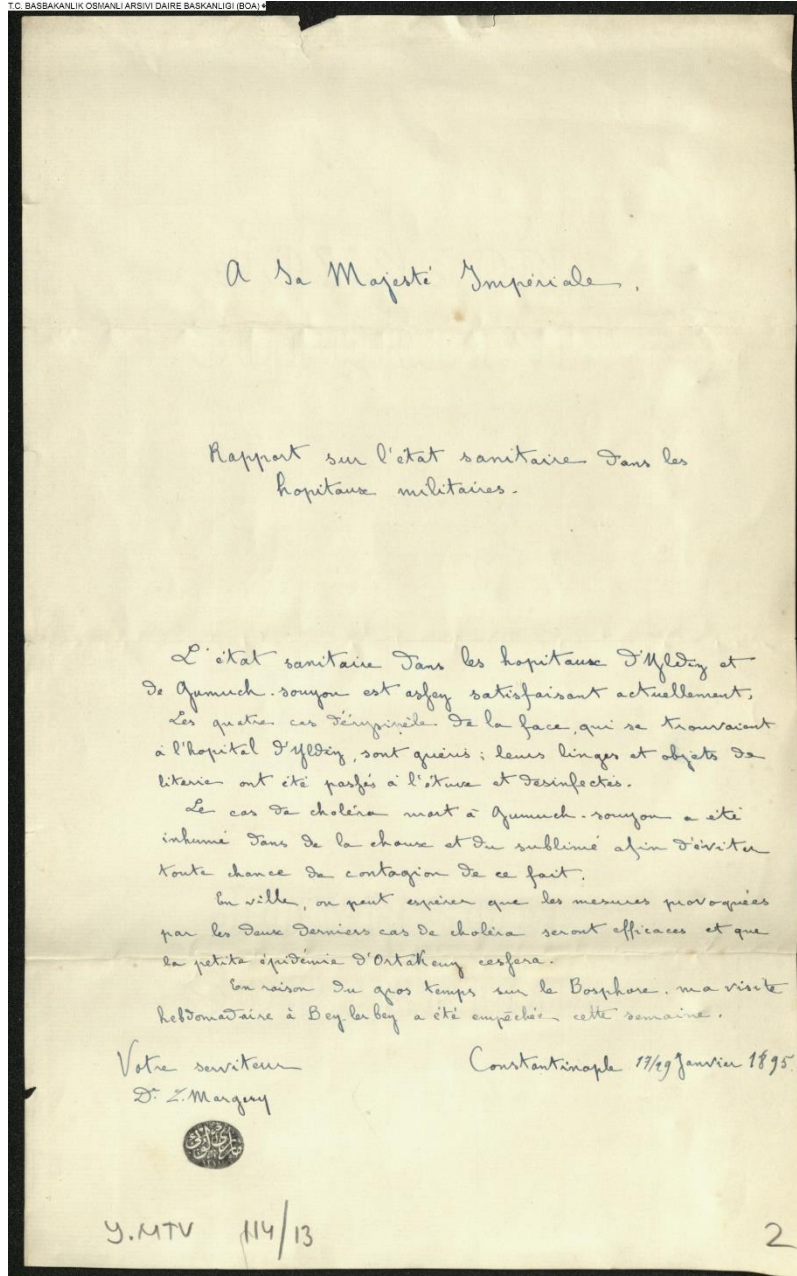 T.C. BASBAKANLIK OSMANLI ARSIVI DAIRE BASKANLIGI (BOA)
A Sa Majesté Impériale.
Rapport sur l'état sanitaire dans les
hopitaux militaires.
L'état sanitaire dans les hopitaux d'Yldiz et
de Gumuch-souyou est assez satisfaisant actuellement.
Les quatre cas d'érysipèle de la face, qui se trouvaient
à l'hopital d'Yldiz, sont guéris; leurs linges et objets de
literie ont été passés à l'étuve et désinfectés.
Le cas de choléra mort à Gumuch-souyou a été
inhumé dans de la chaux et du sublimé afin d'éviter
toute chance de contagion de ce fait.
En ville, on peut espérer que les mesures provoquées
par les deux derniers cas de choléra seront efficaces et que
la petite épidémie d'Ortakeuy cessera.
En raison du gros temps sur le Bosphore, ma visite
hebdomadaire à Beylerbey a été empêchée cette semaine.
Votre serviteur
Constantinople 17/29 Janvier 1895.
Dr
Y.MTV 114/13
2